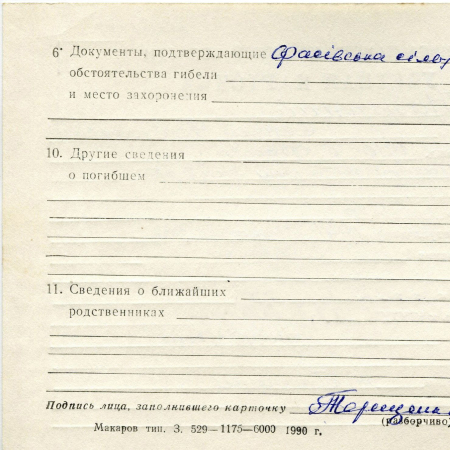 6· Документы, подтверждающие Фасівська сільр
обстоятельства гибели
и место захоронения
10. Другие сведения
о погибшем
11. Сведения о ближайших
родственниках
Подпись лица, заполнившего карточку
(разборчиво)
Макаров тип. З. 529—1175—6000 1990 г.